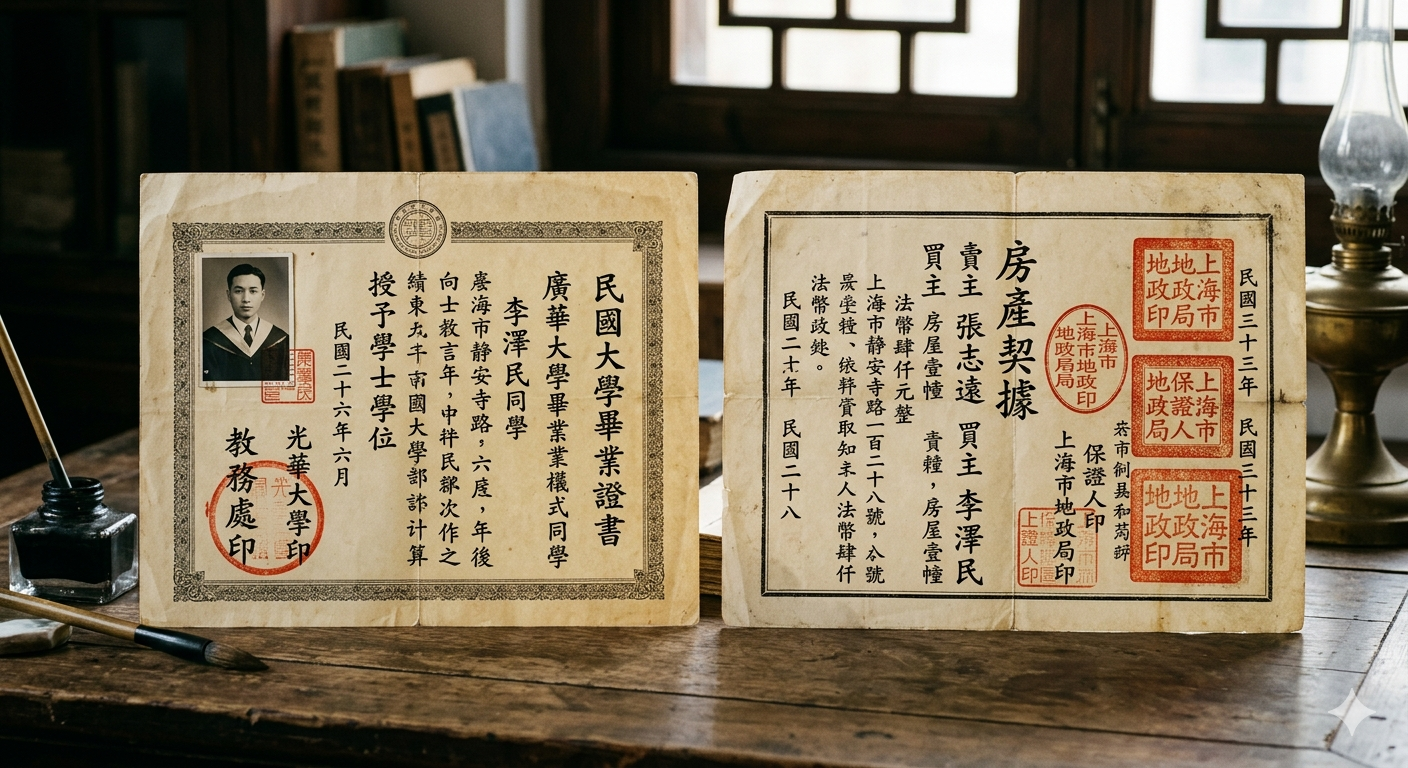 民國大學畢業證書
廣華大學畢業業檥式同學
李澤民同學
海市静安寺路，六，年後
向士教言年，中民郡次作之
績東九年南國大學计算
授予學士學位
民國二十六年六月
光華大學印
教務處印
民國三十三年 民國三十三年
上海市地政局地政印
上海市保證人地政局
上海市地政局地政印
上海市上海市地政印地政局局
保證人印
上海市地政局印
房產契據
賣主 張志遠 買主 李澤民
買主 房屋壹幢 責糧，房屋壹幢
法幣肆仟元整
上海市静安寺路一百二十八號，號
取知人法幣肆仟
法幣政
民國二十年 民國二十八